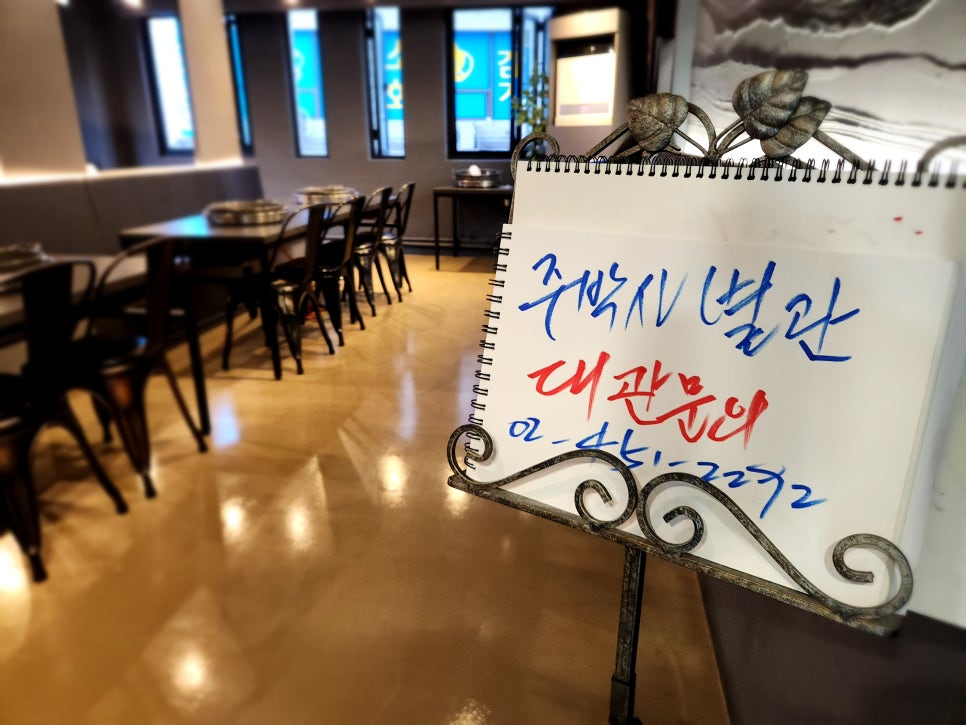 주박사 별관
대관문의
02-451-2292